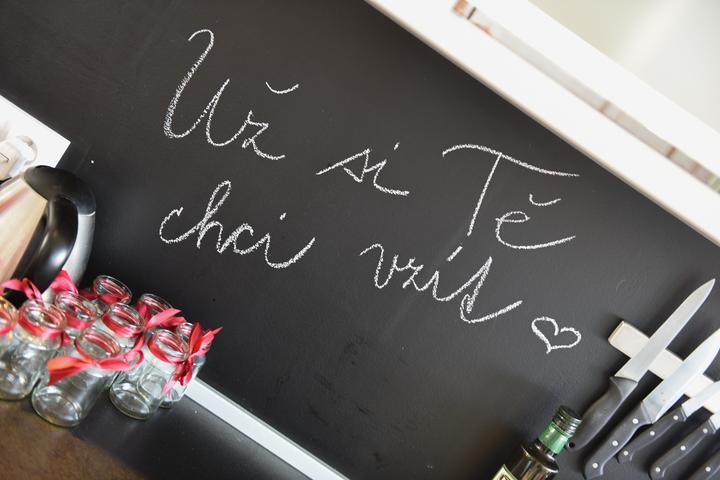 Už si Tě
chci vzít